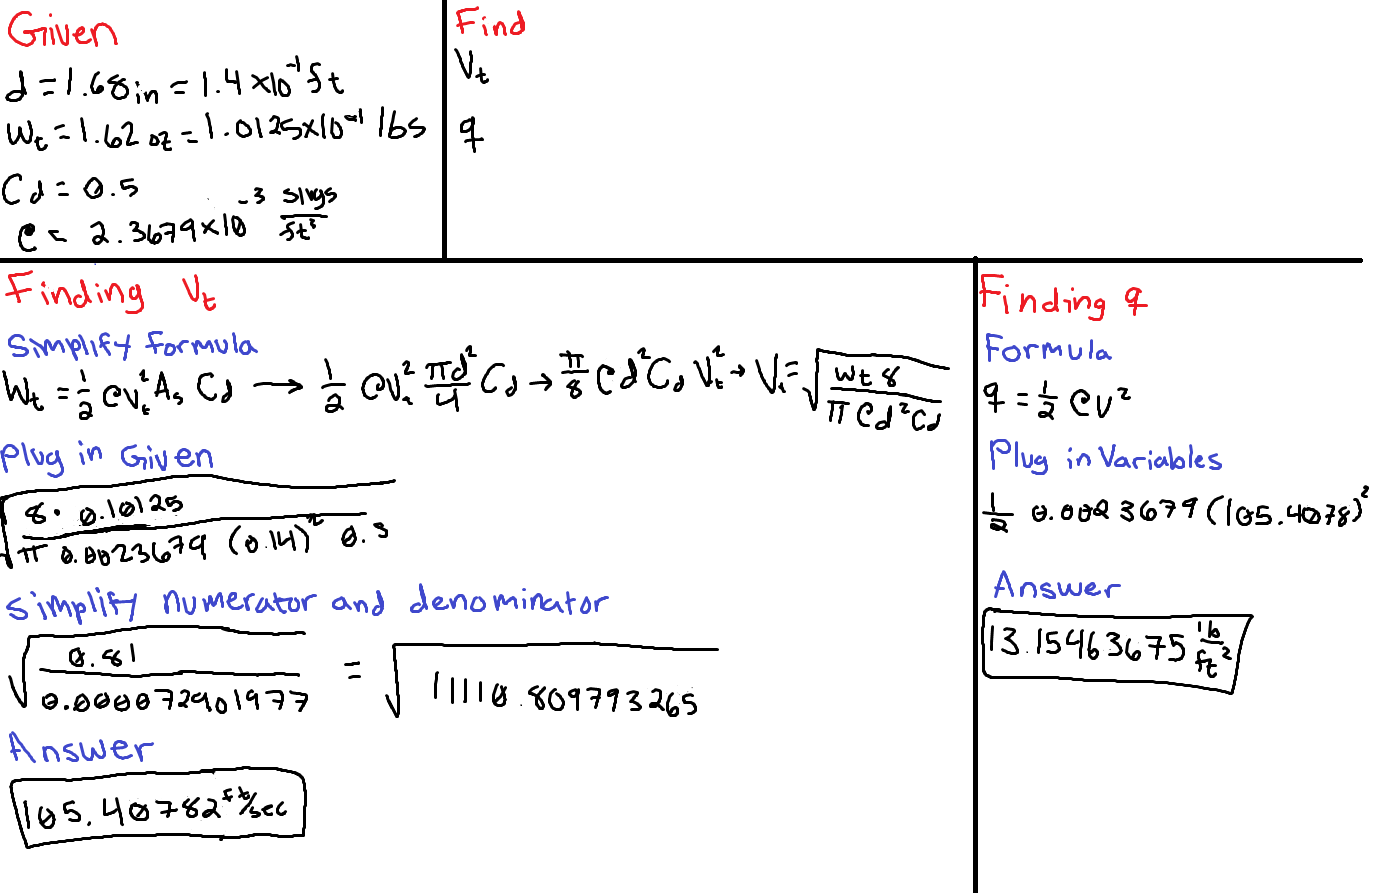 Given
d = 1.68 in = 1.4 × 10⁻¹ ft
Wt = 1.62 oz = 1.0125 × 10⁻¹ lbs
Cd = 0.5
ρ = 2.3679 × 10⁻³ slugs/ft³
Find
Vt
q
Finding Vt
Simplify formula
Wt = 1/2 ρVt² As Cd → 1/2 ρVt² πd²/4 Cd → π/8 ρd² Cd Vt² → Vt = √(Wt 8 / π ρ d² Cd)
Plug in Given
√(8 · 0.10125 / π 0.0023679 (0.14)² 0.5)
Simplify numerator and denominator
√(0.81 / 0.000072901977) = √11110.809793265
Answer
105.40782 ft/sec
Finding q
Formula
q = 1/2 ρV²
Plug in Variables
1/2 0.0023679 (105.4078)²
Answer
13.15463675 lb/ft²